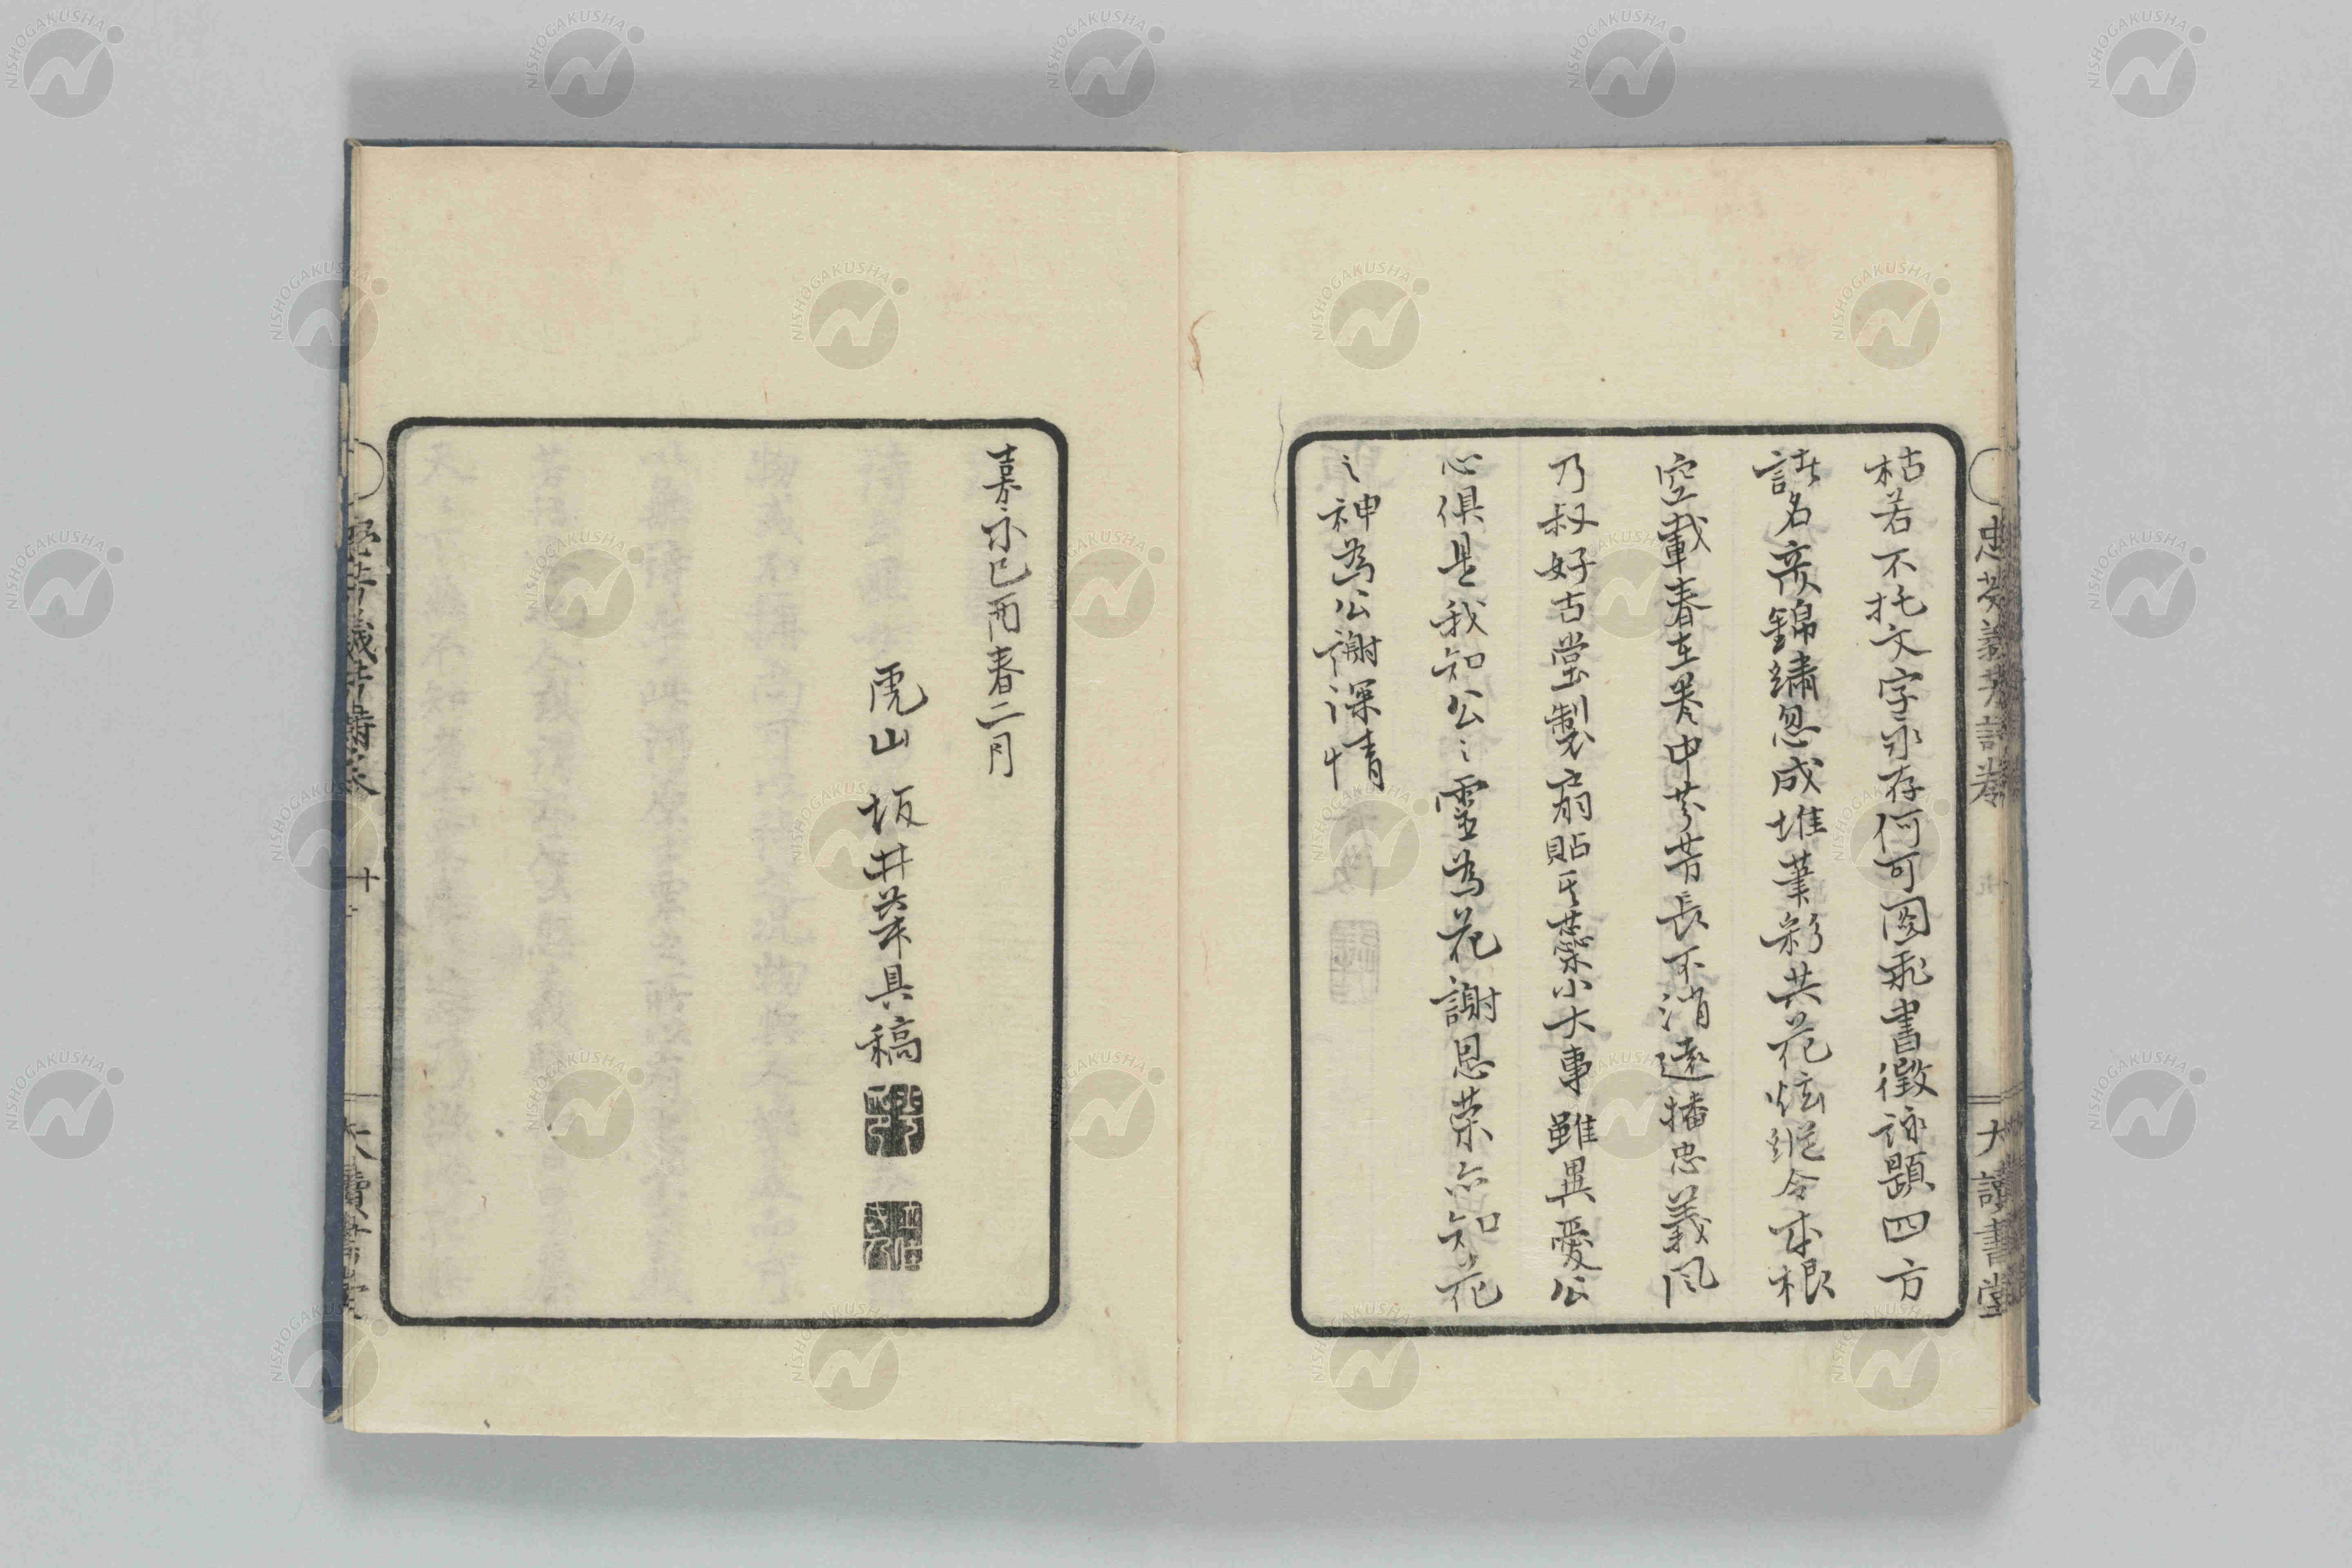 枯若不托文字永存何可圖飛書徴詠題四方
諸名彦錦繍忽成堆葉彩共花炫縦令本根
空載春在巻中芬芳長不消遠播忠義風
乃叔好古堂製扇貼其葉小大事雖異愛公
心俱是我知公〻靈為花謝恩荣亦知花
〻神為公謝深情
嘉永己酉春二月
虎山坂井華具稿
忠芬義芳詩巻
大讀書堂
忠芬義芳詩巻
十
大讀書堂
NISHOGAKUSHA